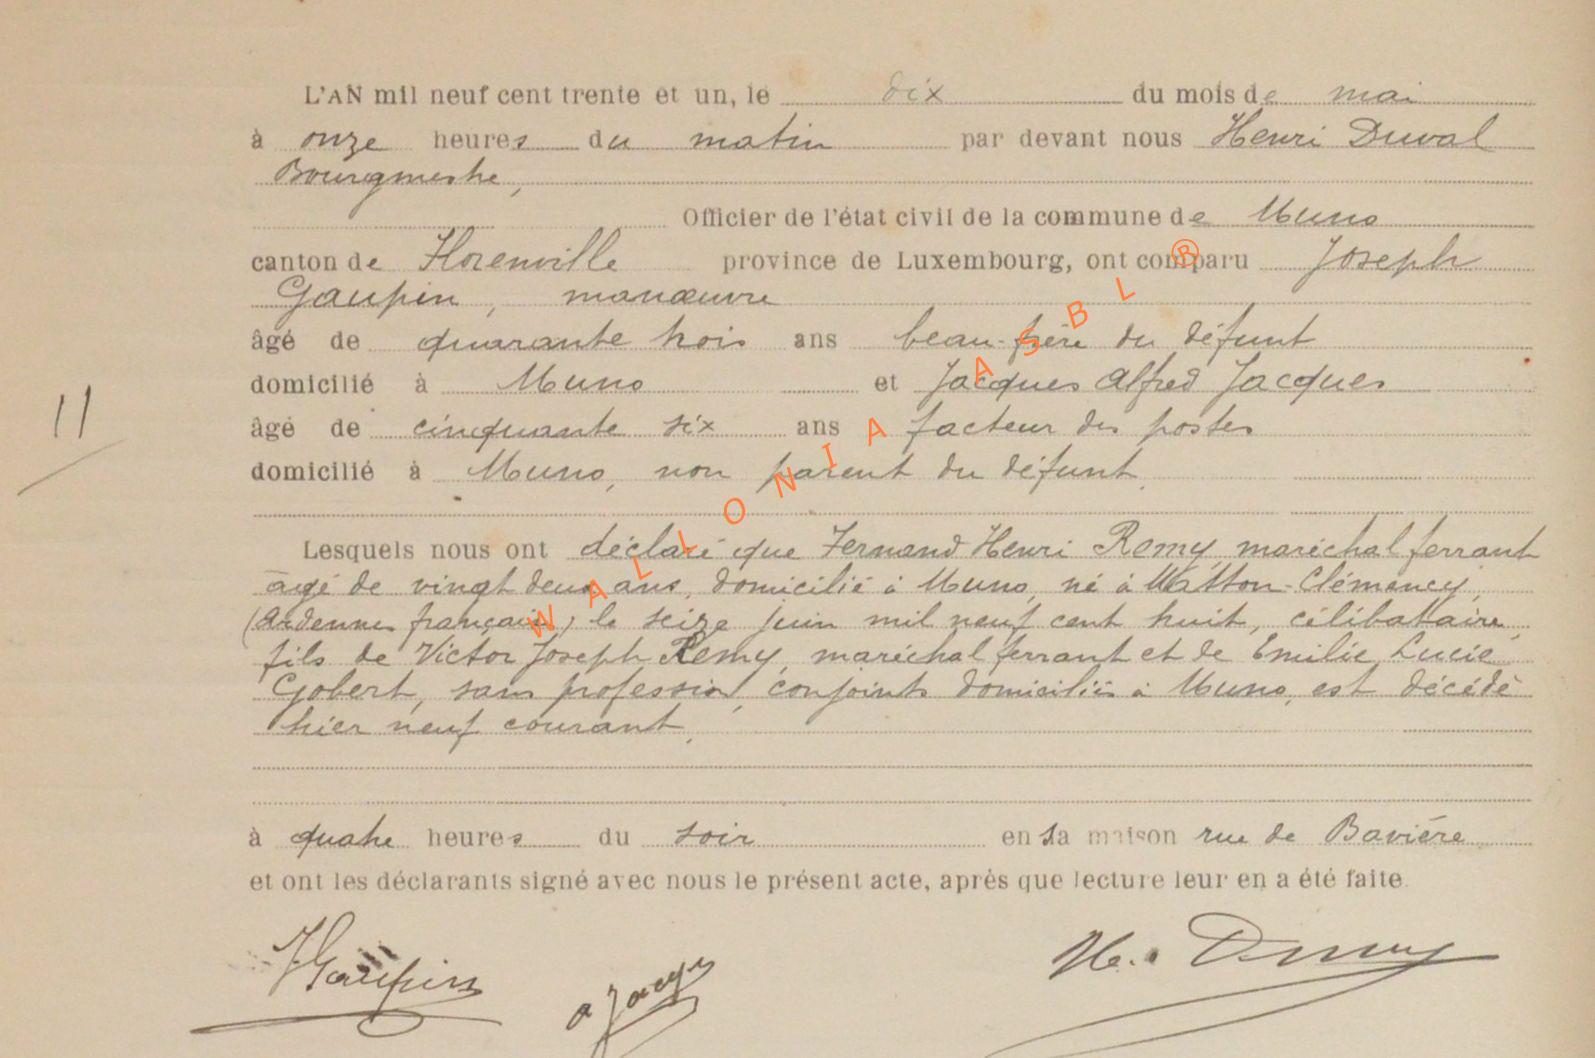 L'AN mil neuf cent trente et un, le dix du mois de mai
à onze heures du matin par devant nous Henri Duval
Bourgmestre,
Officier de l'état civil de la commune de Muno
canton de Florenville province de Luxembourg, ont comparu Joseph
Gaupin, manœuvre
âgé de quarante trois ans beau-frère du défunt
domicilié à Muno et Jacques Alfred Jacques
11
âgé de cinquante six ans facteur des postes
domicilié à Muno, non parent du défunt.
Lesquels nous ont déclaré que Fernand Henri Remy, maréchal ferrant
âgé de vingt deux ans, domicilié à Muno, né à Matton-Clémency,
(Ardennes françaises) le seize juin mil neuf cent huit, célibataire,
fils de Victor Joseph Remy, maréchal ferrant et de Emilie Lucie
Gobert, sans profession, conjoints domiciliés à Muno, est décédé
hier neuf courant.
à quatre heures du soir en sa maison rue de Bavière
et ont les déclarants signé avec nous le présent acte, après que lecture leur en a été faite.
J Gaupin
a Jacques
H. Duval
WALLONIA ASBL ®